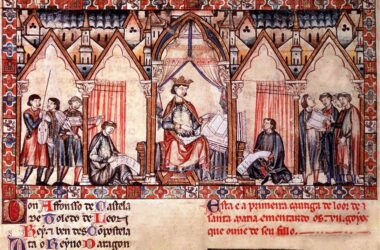 Don Affonsso de Castela
de Toledo de Leon
Rey τ ben des Conpostela
ta o Reyno Daragon
Esta e a primeira cantiga de loor de
santa maria ementando os .vii. goyos
que ouue de seu fillo.